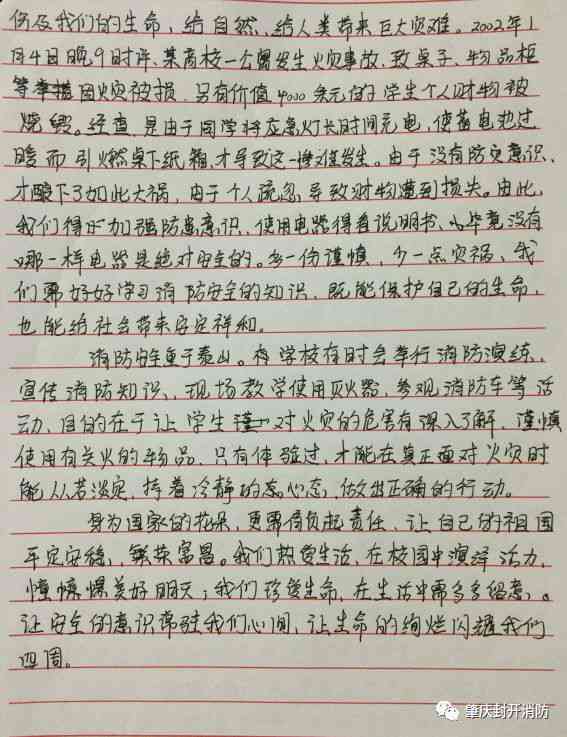 伤及我们的生命，给自然、给人类带来巨大灾难。2002年1
月4日晚9时许，某高校一公寓发生火灾事故，致桌子、物品柜
等因火灾被损，另有价值4000余元的学生个人财物被
烧毁。经查，是由于同学将应急灯长时间充电，使蓄电池过
暖而引燃桌下纸箱，才导致这一惨难发生。由于没有防灾意识，
才酿下了如此大祸，由于个人疏忽，导致财物遭到损失。由此，
我们得加强防患意识，使用电器得看说明书，毕竟没有
哪一样电器是绝对安全的。多一份谨慎，少一点灾祸，我
们需好好学习消防安全的知识，既能保护自己的生命，
也能给社会带来安定祥和。
消防安全重于泰山。有学校有时会举行消防演练、
宣传消防知识、现场教学使用灭火器、参观消防车等活
动，目的在于让学生对火灾的危害有深入了解，谨慎
使用有关火的物品，只有体验过，才能在真正面对火灾时
能从若淡定，持着冷静的态心态，做出正确的行动。
身为国家的花朵，更需肩负起责任，让自己的祖国
平定安稳，繁荣富昌。我们热爱生活，在校园中演绎活力，
憧憬美好明天；我们珍爱生命，在生活中需多多留意。
让安全的意识常驻我们心间，让生命的绚烂闪耀我们
四周。
肇庆封开消防